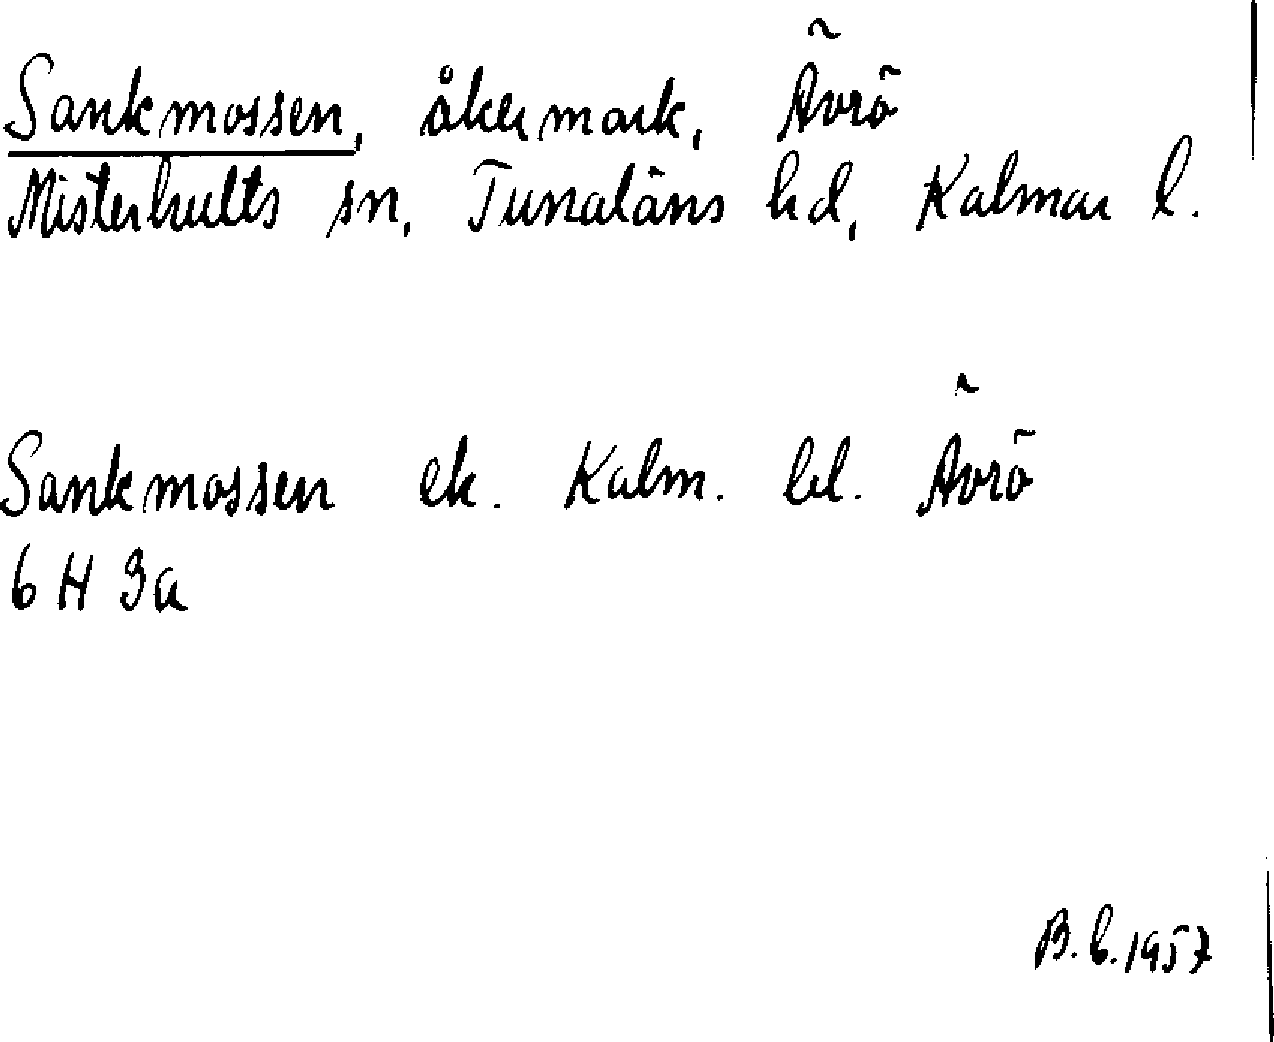 Sankmossen, åkermark, Ävrö
Misterhults sn, Tunaläns hd, Kalmar l.
Sankmossen ek. Kalm. bl. Ävrö
6 H 3a
B.b.1957